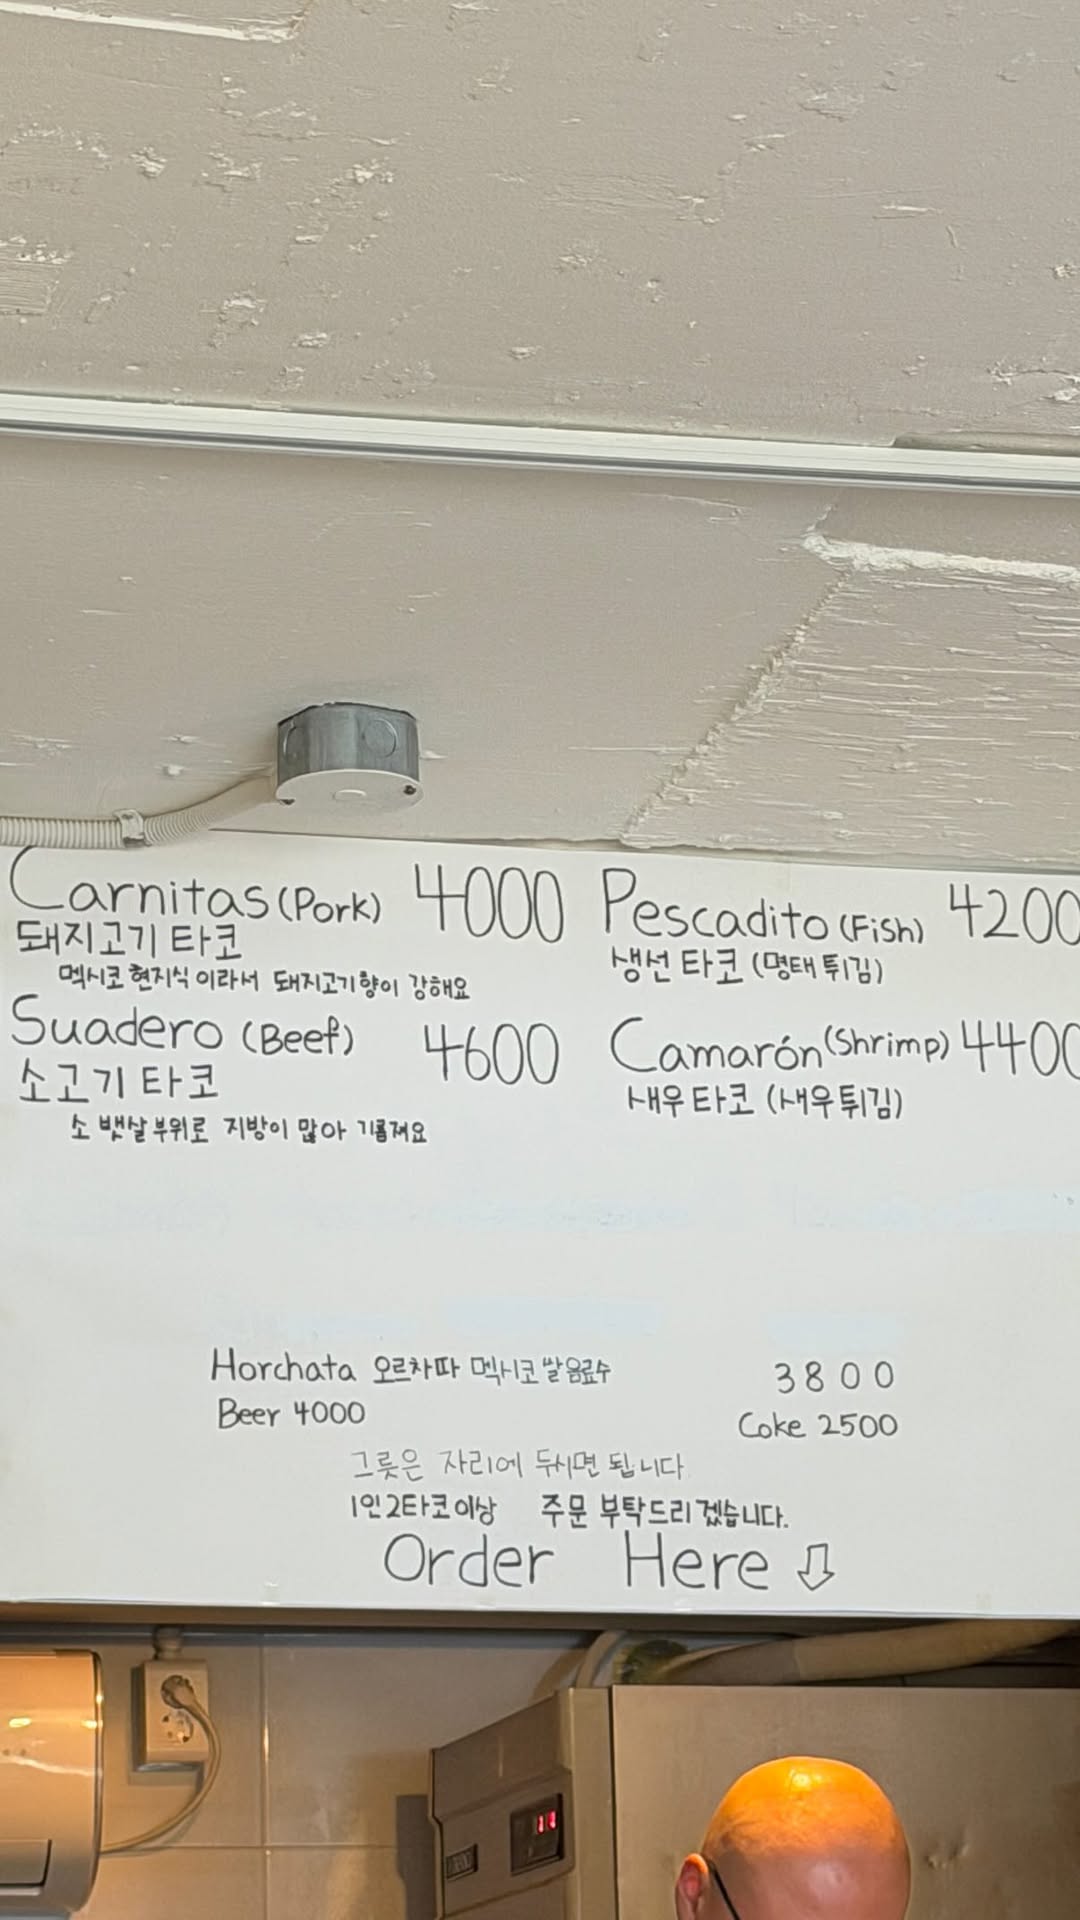 Carnitas (Pork) 4000
돼지고기 타코
멕시코 현지식이라서 돼지고기향이 강해요
Suadero (Beef) 4600
소고기 타코
소 뱃살부위로 지방이 많아 기름져요
Pescadito (Fish) 4200
생선 타코 (명태 튀김)
Camarón (Shrimp) 4400
새우타코 (새우튀김)
Horchata 오르차따 멕시코쌀음료수 3800
Beer 4000 Coke 2500
그릇은 자리에 두시면 됩니다
1인2타코이상 주문 부탁드리겠습니다.
Order Here ⇩
11